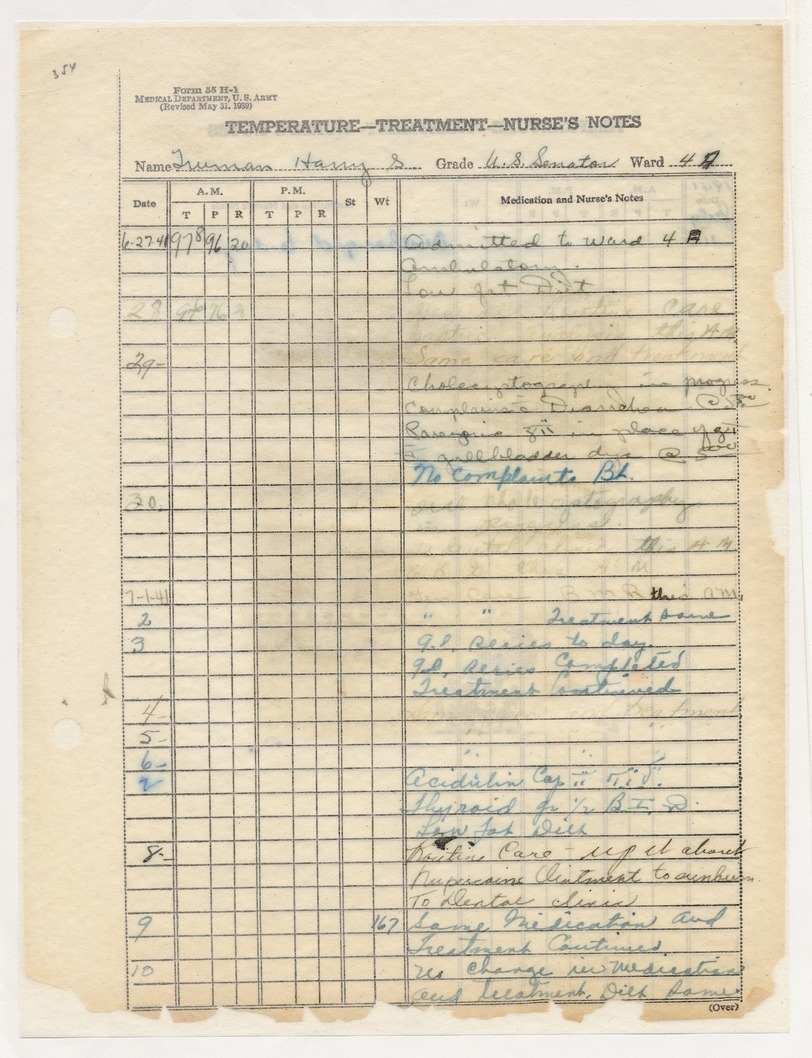 354
Form 55 H-1
MEDICAL DEPARTMENT, U. S. ARMY
(Revised May 31, 1939)
TEMPERATURE—TREATMENT—NURSE'S NOTES
Name Truman Harry S Grade U.S. Senator Ward 4 A
Date A.M. P.M. St Wt Medication and Nurse's Notes
T P R T P R
6-27-41 97⁸ 96 20 Admitted to Ward 4 A
Ambulatory.
Low fat Diet
28 care
this A.M.
29- Same care and treatment
Cholecystography in progress.
Complains Diarrhea @
Paregoric in place
gallbladder dye @ 5⁰⁰
No Complaints
30. Cholecystography
in progress.
this A M
A M
7-1-41 Care B M R this a.m.
2 " " Treatment same
3 G.I. Series to day.
G.I. Series Completed
Treatment Continued
4- and treatment
5- "
6- " " "
7 Acidulin Cap ii T.i.d.
Thyroid gr ½ B.I.D.
Low fat Diet
8- Routine Care - up at about
Nupercaine Ointment to sunburn.
To Dental clinic
9 167 Same Medication and
Treatment Continued
10 No change in medication
and treatment, Diet same
(Over)